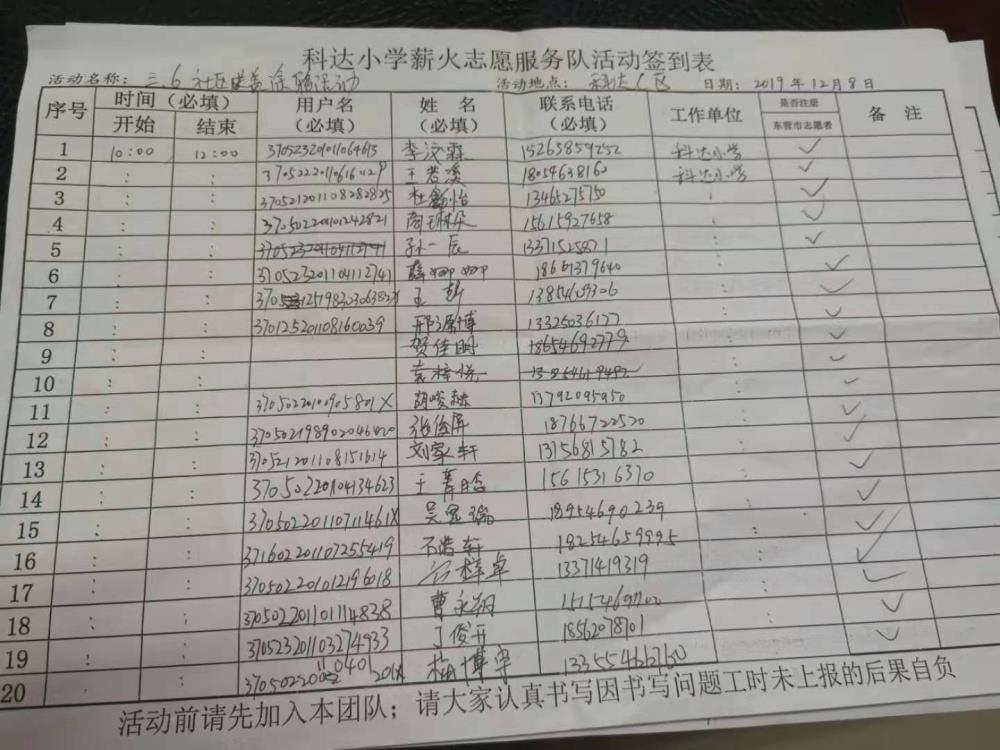 科达小学薪火志愿服务队活动签到表
活动名称： 三.6 社区 活动 活动地点： 科达C区 日期： 2019年12月8日
序号 时间（必填） 用户名（必填） 姓名（必填） 联系电话（必填） 工作单位 是否注册东营市志愿者 备注
开始 结束
1 10:00 12:00 李汶霖 15263859252 科达小学 ✓
2 : : 王若溪 18054638160 科达小学 ✓
3 : : 370521201108282825 杜鑫怡 13465275750 : ✓
4 : : 37050220101242821 15615927658 : ✓
5 : : 370523201104112741 孙一辰 13371525871 : ✓
6 : : 370523201104112741 薛卿卿 18661379640 : ✓
7 : : 王彭 13854609306 : ✓
8 : : 370125201108160039 邢源博 13325036177 : ✓
9 : : 贺佳明 18654692779 : ✓
10 : : 袁梓悦 : ✓
11 : : 37050220100905801X 胡峻赫 13792095950 : ✓
12 : : 370502198902046420 张俊屏 18766722520 : ✓
13 : : 370521201108151614 刘家轩 13156815182 : ✓
14 : : 370502201104134623 王菁晗 15615316370 : ✓
15 : : 37050220110711461X 吴 18954690239 : ✓
16 : : 371602201107255419 石浩轩 18254659995 : ✓
17 : : 370502201012196018 梓卓 13371419319 : ✓
18 : : 370502201101114838 曹永翔 : ✓
19 : : 370523201103274933 丁俊开 18562078101 : ✓
20 : : 博宇 13355466760 :
活动前请先加入本团队；请大家认真书写因书写问题工时未上报的后果自负